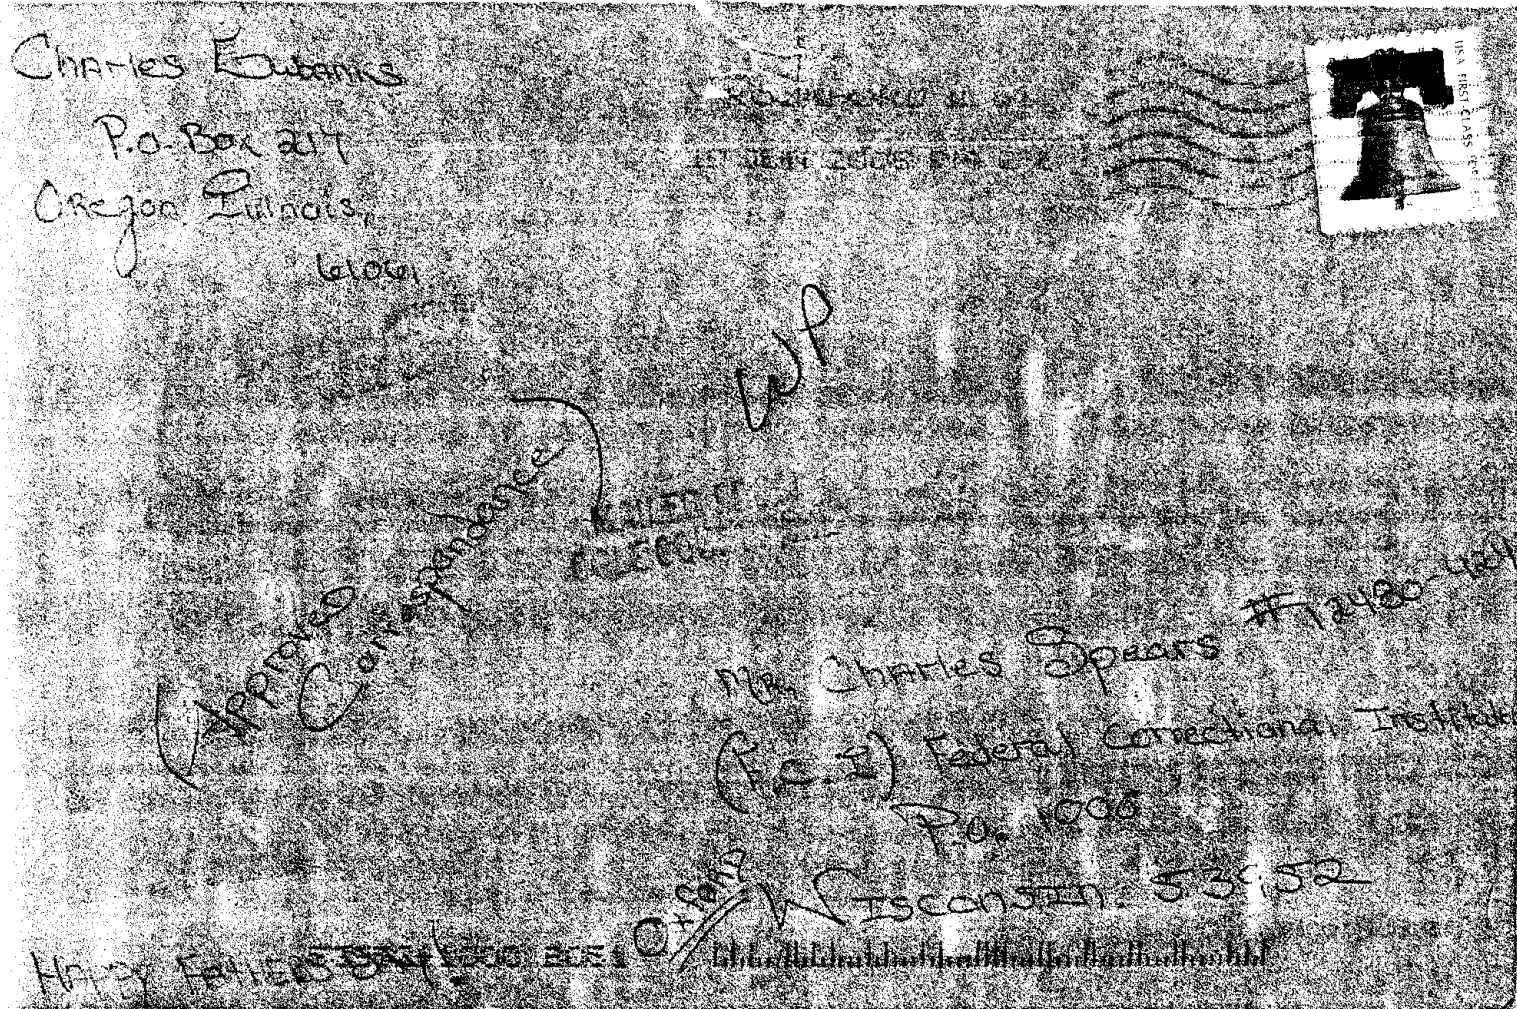 Charles Eubanks
P.O. Box 217
Oregon Illinois,
61061
USA FIRST-CLASS
WP
(Approved
Correspondance)
Mr. Charles Spears #12480-424
(F.C.I) Federal Correctional Institute
P.O. 1000
Oxford Wisconsin. 53952
Happy Father's Day!